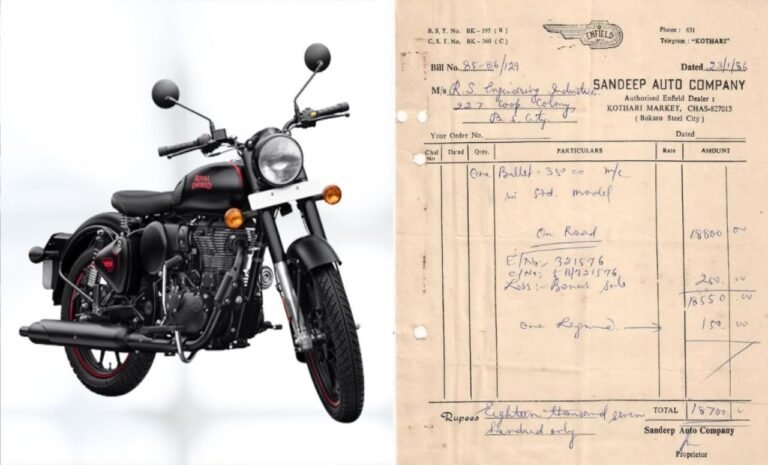 ROYAL
ENFIELD
B.S.T. No. BK-195 (R)
C.S.T. No. BK-369 (C)
ENFIELD
Phone : 631
Telegram : "KOTHARI"
Bill No. 85-86/129
Dated 23/1/86
M/s R.S. Engineering Industries
227 Coop. Colony
B. S. City
SANDEEP AUTO COMPANY
Authorised Enfield Dealer :
KOTHARI MARKET, CHAS-827013
( Bokaro Steel City )
Your Order No.
Dated
Chal No Dated Qnty. PARTICULARS Rate AMOUNT
One Bullet - 350 cc m/c
in Std. Model
On Road 18800 00
E/No:- 321576
C/No: 5 B/321576
Less:- Bonus 250 00
18550 00
One 150 00
Rupees Eighteen thousand seven
hundred only
TOTAL 18700
Sandeep Auto Company
Proprietor